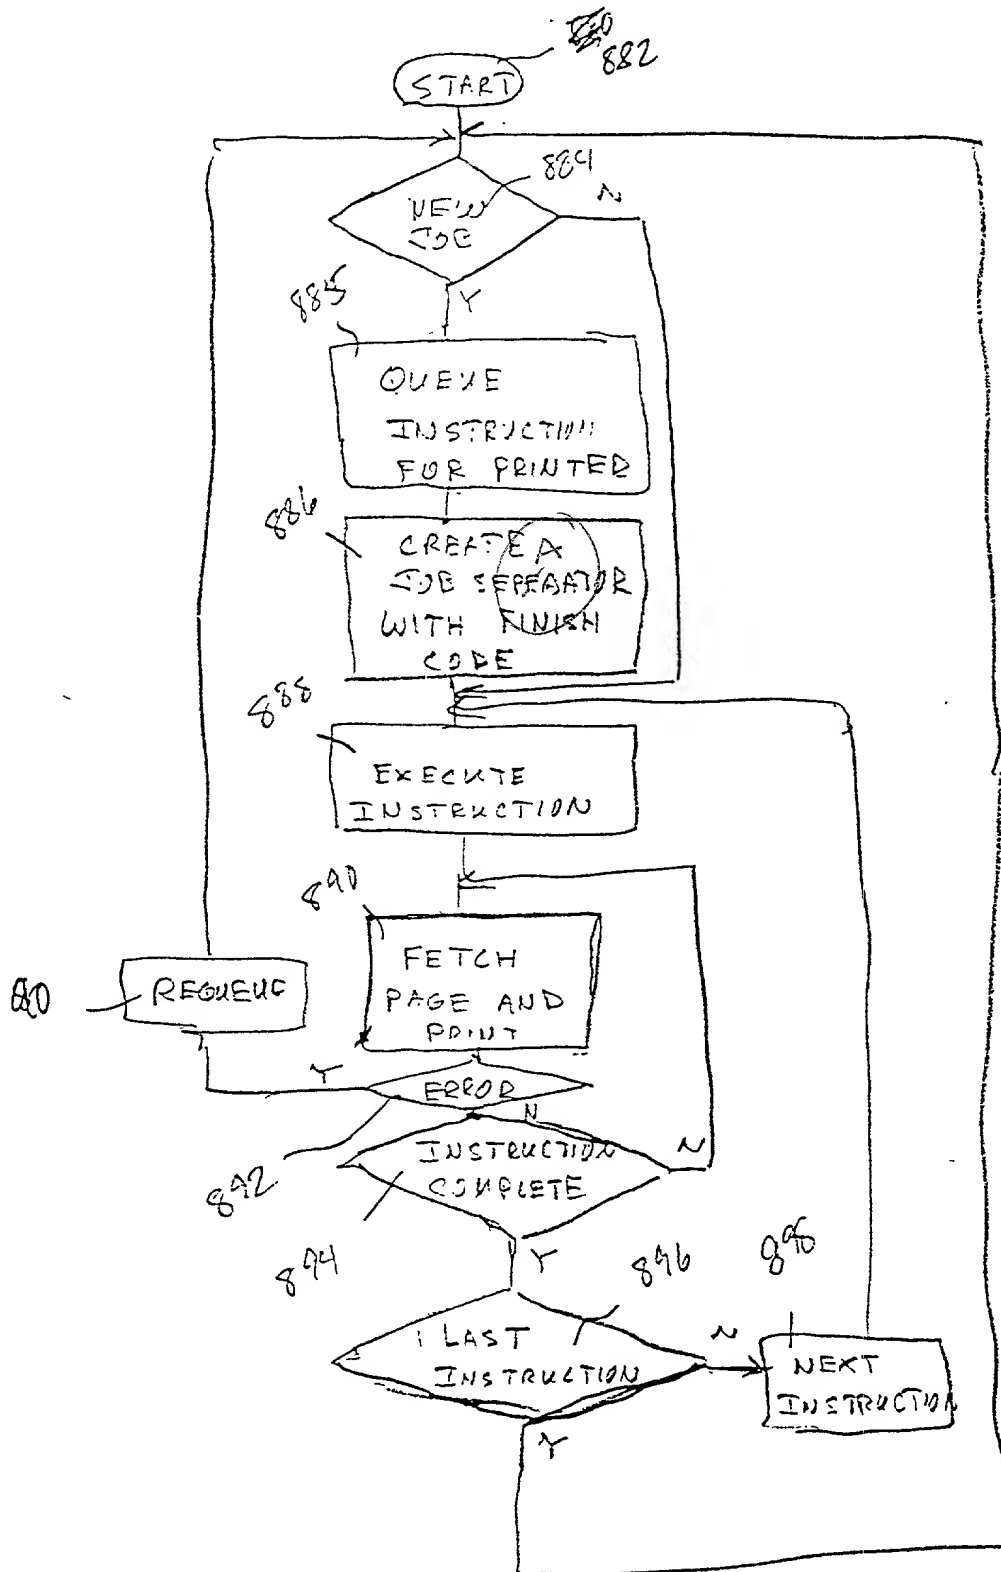 882
START
884
NEW
JOB
N
Y
885
QUEUE
INSTRUCTION
FOR PRINTER
886
CREATE A
JOB SEPERATOR
WITH FINISH
CODE
888
EXECUTE
INSTRUCTION
890
FETCH
PAGE AND
PRINT
REQUEUE
Y
ERROR
N
892
INSTRUCTION
COMPLETE
N
Y
894
896
898
LAST
INSTRUCTION
N
NEXT
INSTRUCTION
Y